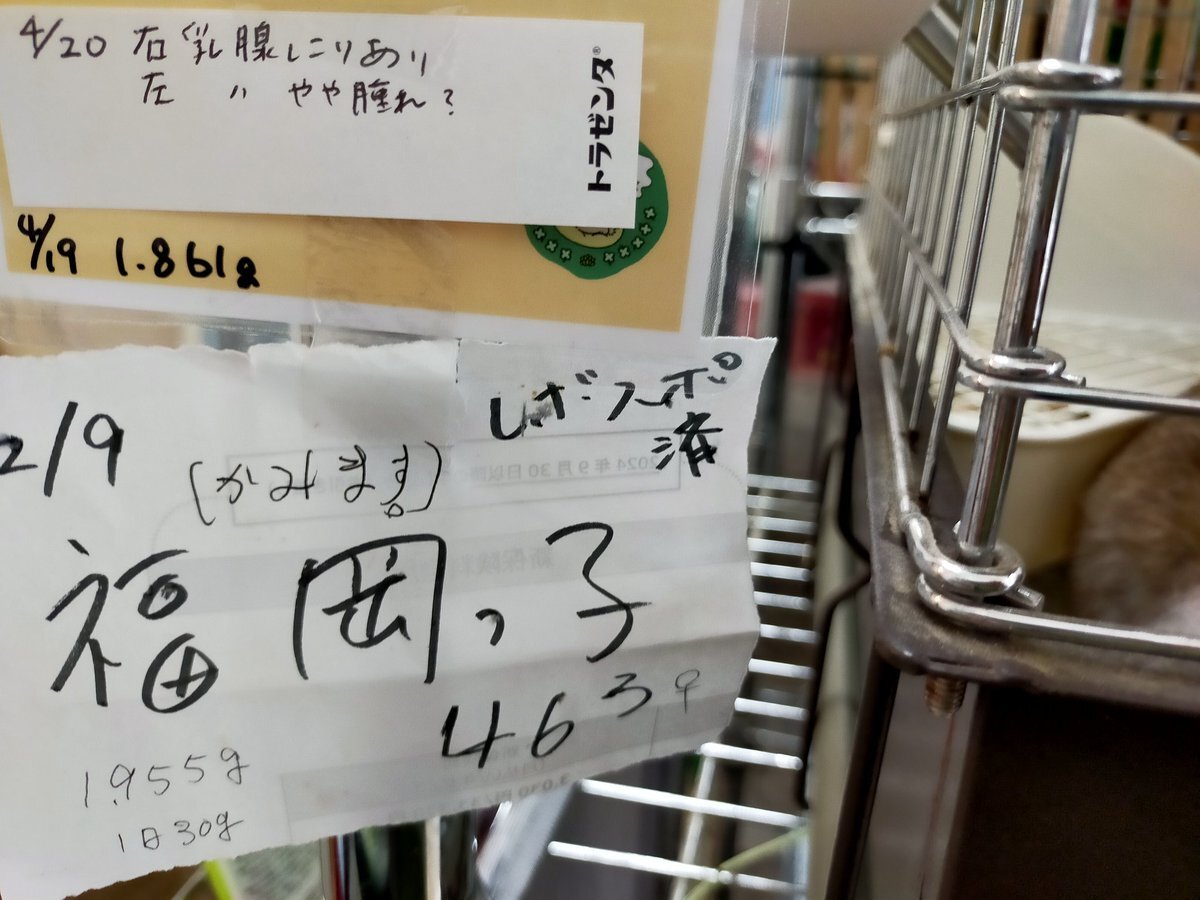 4/20 右乳腺しこりあり
左 〃 やや腫れ?
トラゼンタ®
4/19 1.861g
2/9
レボリューポ
済
(かみます)
福岡っ子
463♀
1.955g
1日30g
2024年9月30日以降